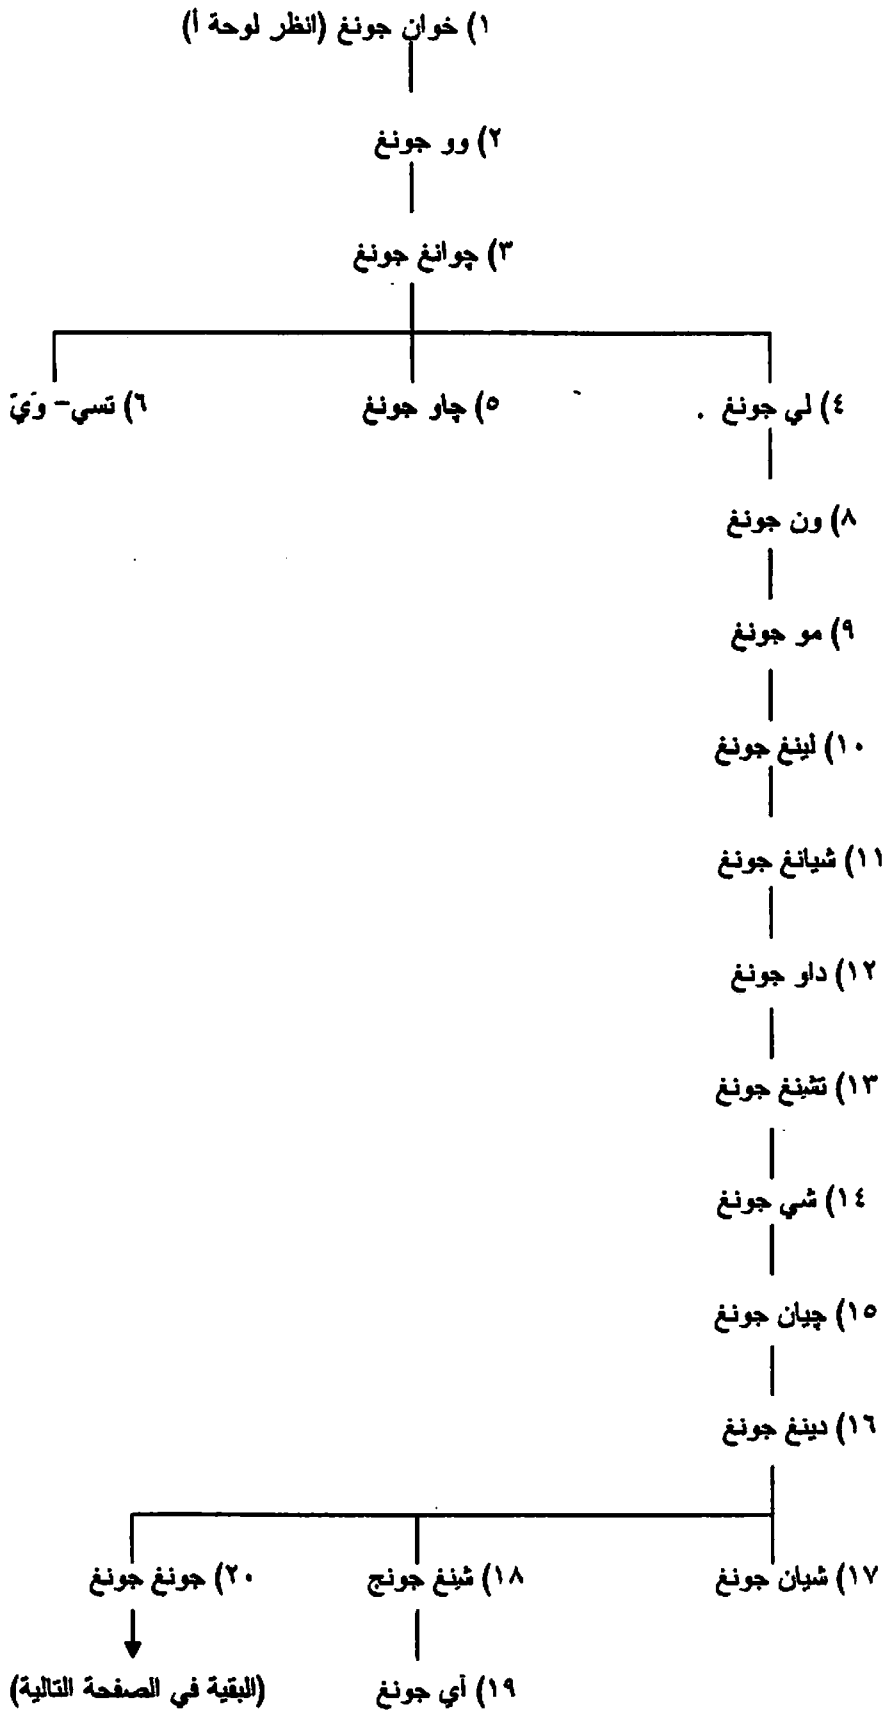 ١) خوان جونغ (انظر لوحة أ)
٢) وو جونغ
٣) چوانغ جونغ
٤) لي جونغ
٥) چاو جونغ
٦) تسي- وَيّ
٨) ون جونغ
٩) مو جونغ
١٠) لينغ جونغ
١١) شيانغ جونغ
١٢) داو جونغ
١٣) تشنغ جونغ
١٤) شي جونغ
١٥) چيان جونغ
١٦) دينغ جونغ
١٧) شيان جونغ
١٨) شنغ جونج
٢٠) جونغ جونغ
١٩) آي جونغ
(البقية في الصفحة التالية)